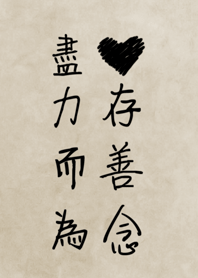 ♥存善念
盡力而為